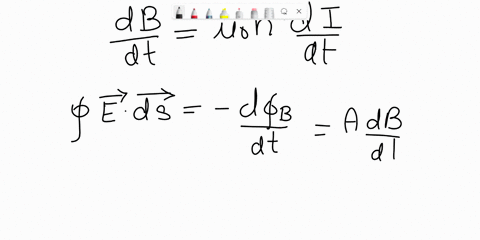 dB/dt = μ₀n dI/dt
∮ E⃗·ds⃗ = − dϕB/dt = A dB/dt